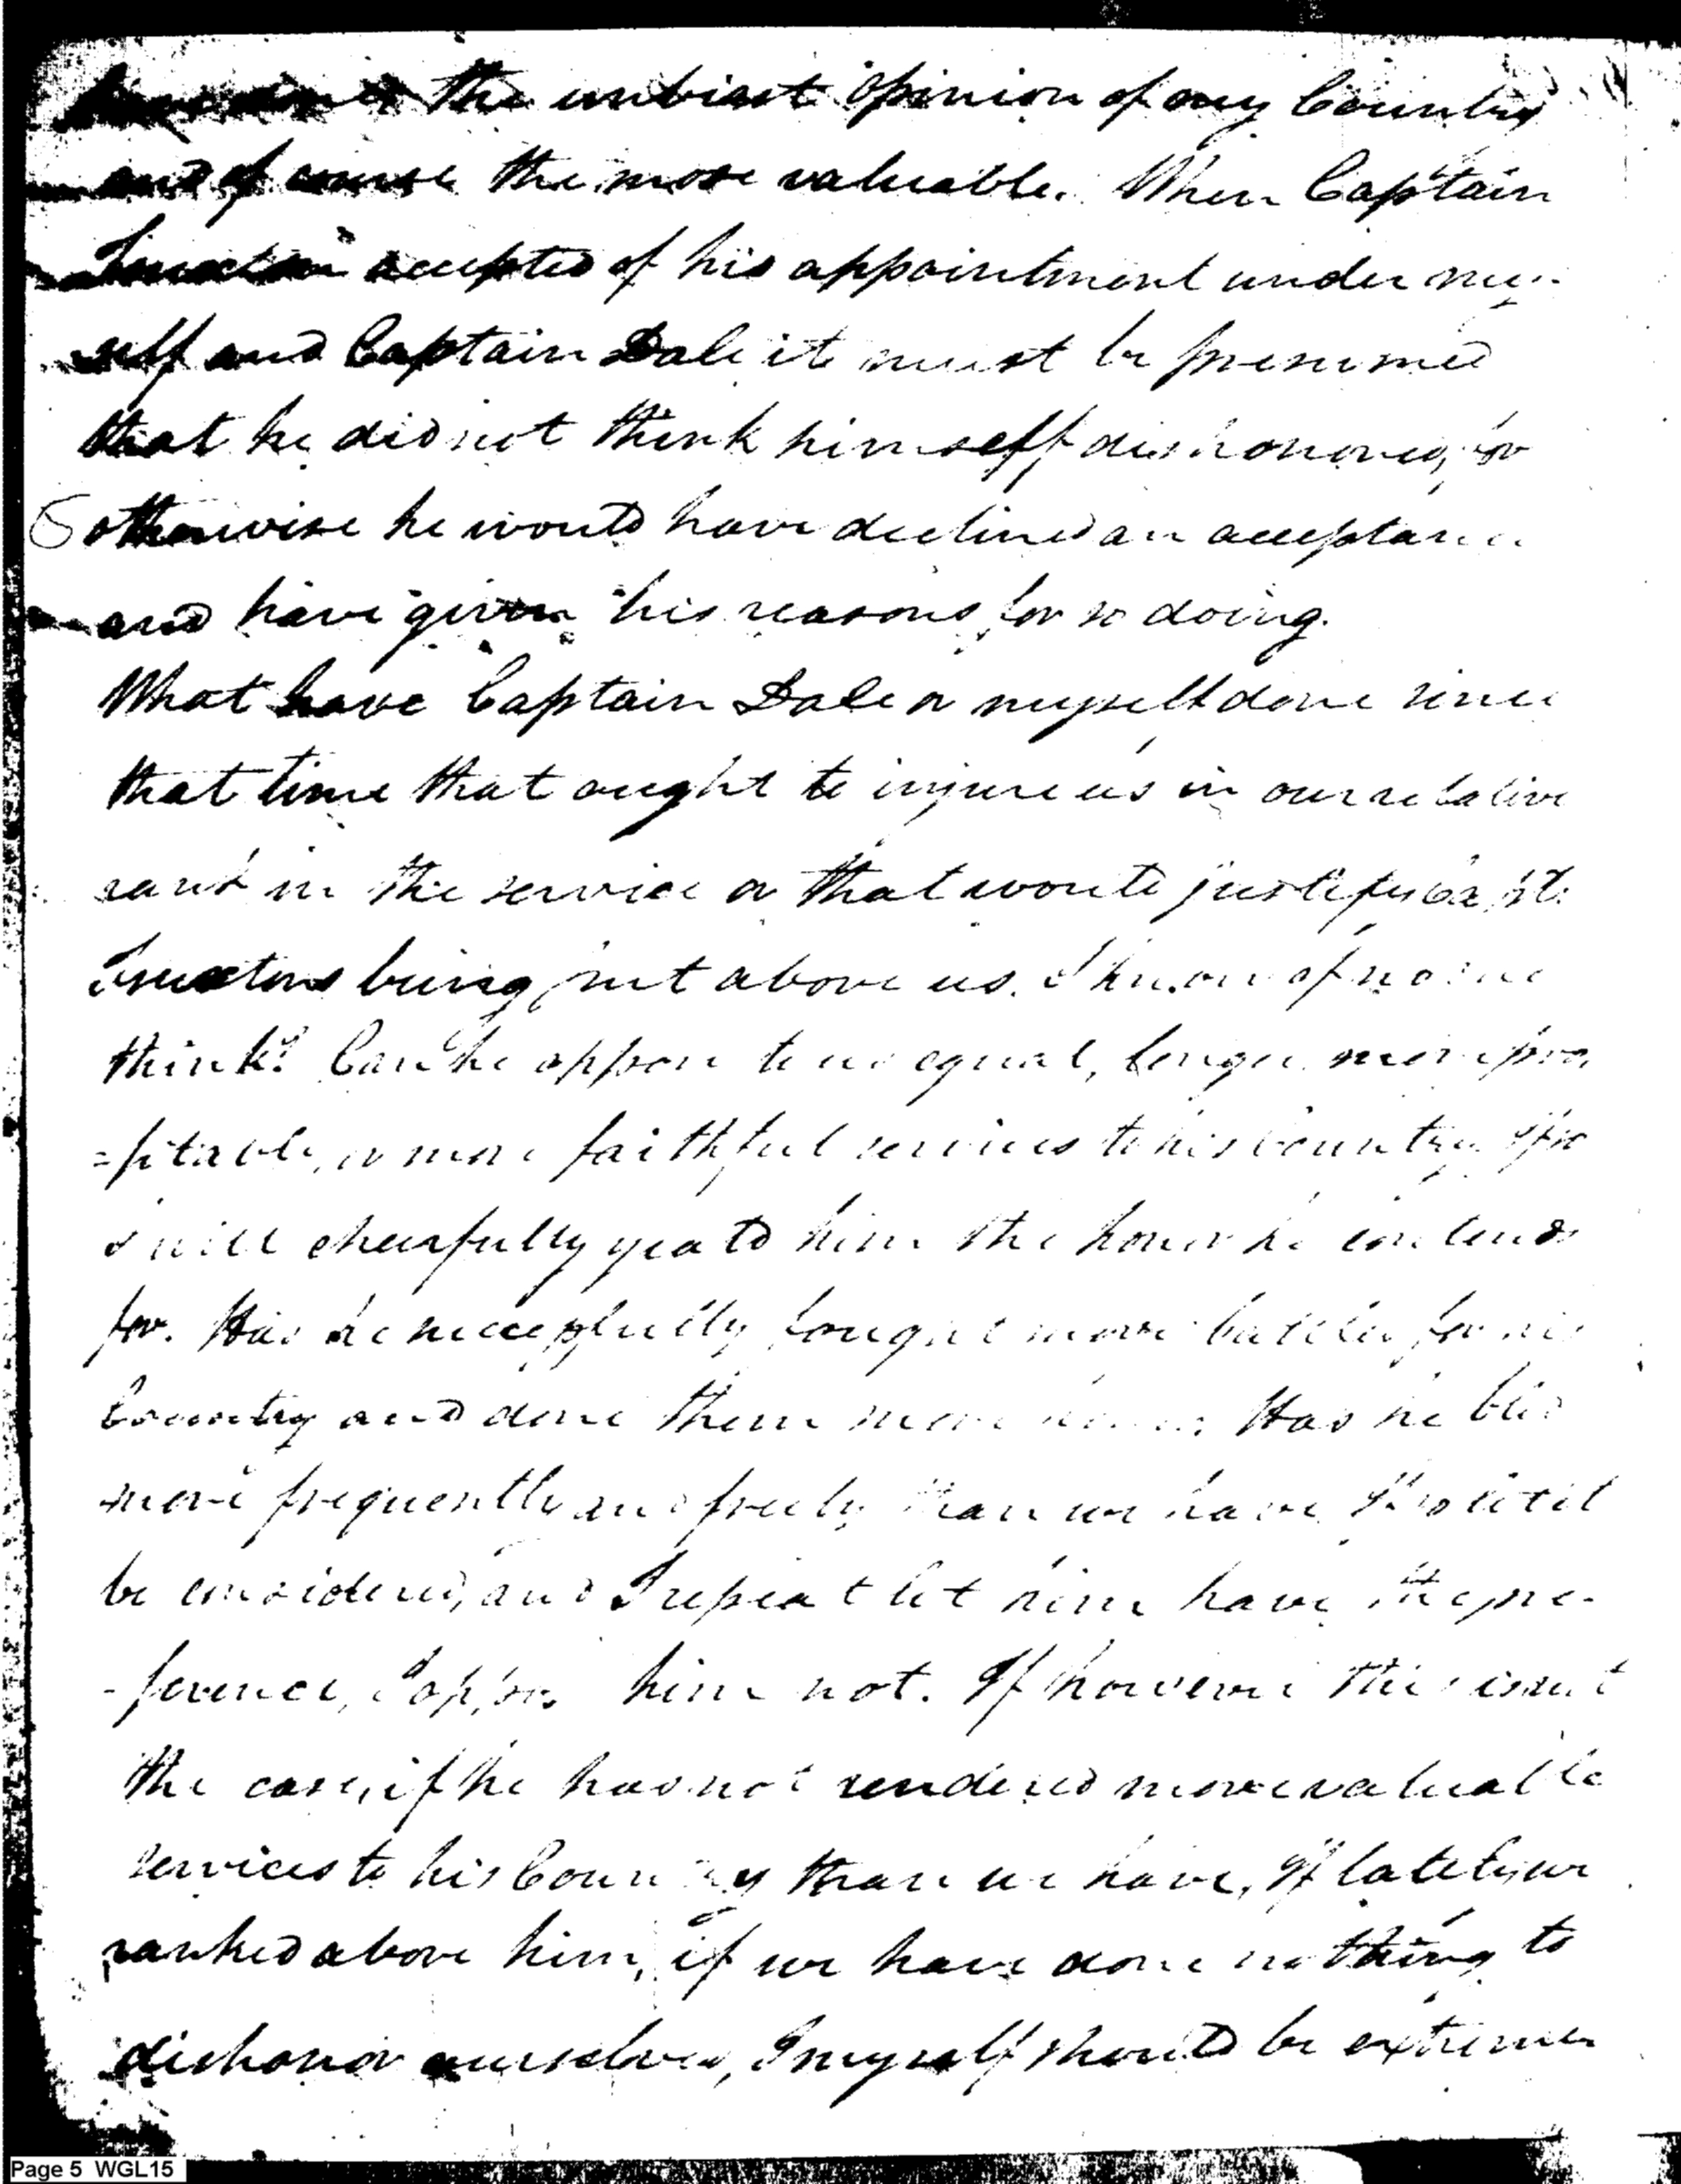 the unbiast opinion of my Country
and of course the more valuable. When Captain
Truxton accepted of his appointment under my-
self and Captain Dale it must be presumed
that he did not think himself dishonored, for
otherwise he would have declined an acceptance
and have given his reasons for so doing.
What have Captain Dale or myself done since
that time that ought to injure us in our relative
rank in the service or that would justify Capt.
Truxtons being put above us. I know of none
think? Can he oppose to us equal, longer more pro
=fitable, or more faithful services to his Country. If so
I will cheerfully yeald him the honor he contends
for. Has he successfully fought more battles for his
Country and done them more Has he bled
more frequently and freely than we have. If so let it
be considered, and I repeat let him have the pre-
-ference, I oppose him not. If however this is not
the case, if he has not rendered more valuable
services to his Country than we have, If lately we
ranked above him, if we have done nothing to
dishonor ourselves, I myself should be extremely
Page 5 WGL15